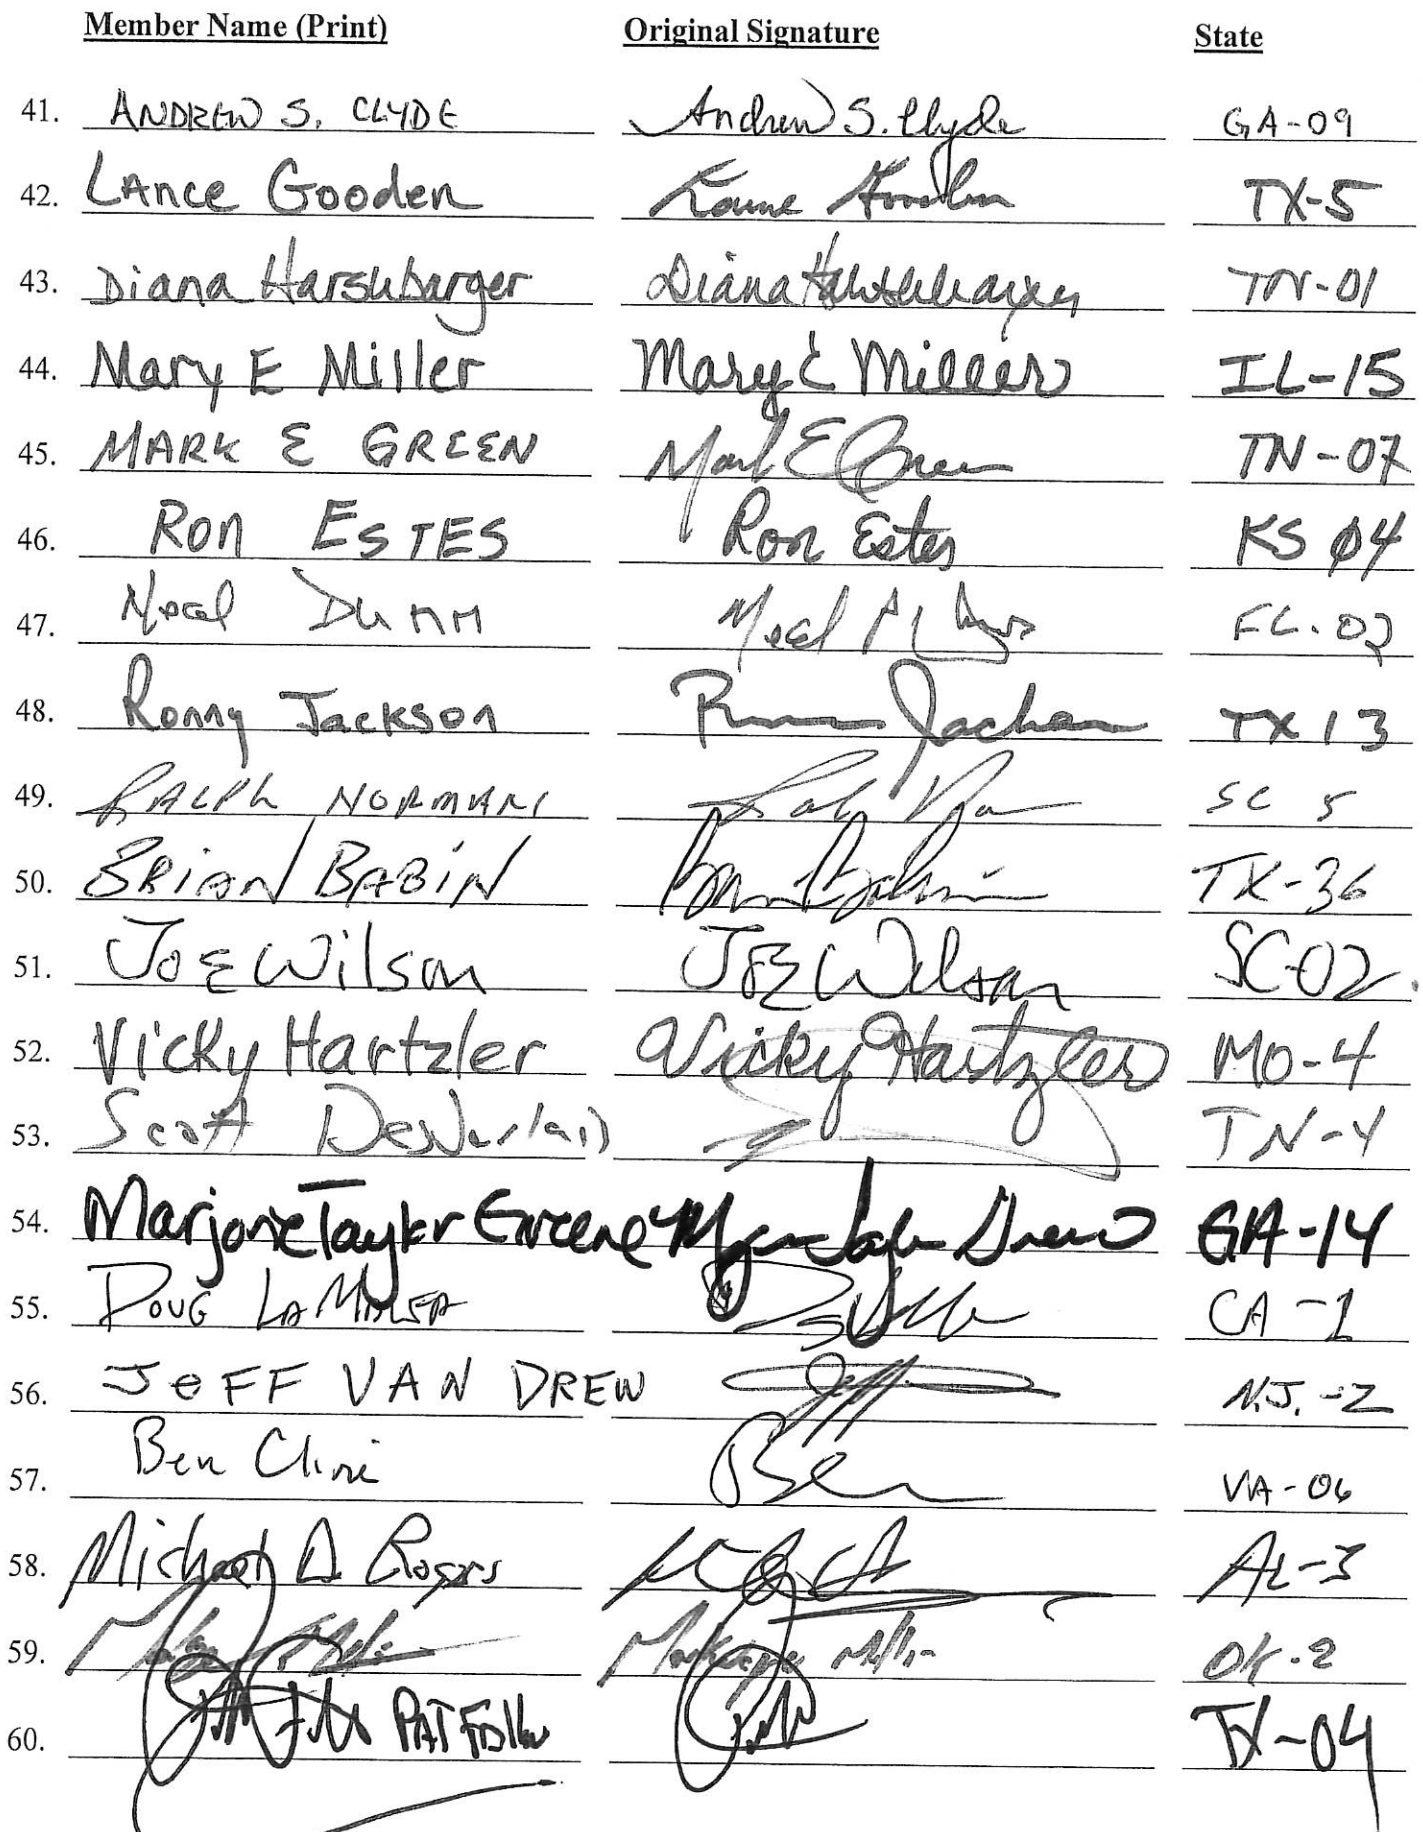 Member Name (Print) Original Signature State
41. ANDREW S. CLYDE Andrew S. Clyde GA-09
42. LAnce Gooden Lance Gooden TX-5
43. Diana Harshbarger Diana Harshbarger TN-01
44. Mary E Miller Mary E Miller IL-15
45. MARK E GREEN Mark E Green TN-07
46. Ron ESTES Ron Estes KS 04
47. Neal Dunn Neal Dunn FL-02
48. Ronny Jackson Ronny Jackson TX 13
49. RALPH NORMAN Ralph Norman SC 5
50. BRIAN BABIN Brian Babin TX-36
51. JOE Wilson JOE Wilson SC-02.
52. Vicky Hartzler Vicky Hartzler MO-4
53. Scott DesJarlais TN-4
54. Marjorie Taylor Greene Marjorie Taylor Greene GA-14
55. DOUG LAMALFA CA-1
56. JeFF VAN DREW Jeff N.J.-2
57. Ben Cline Ben VA-06
58. Michael D Rogers AL-3
59. Markwayne Mullin OK-2
60. PAT Fallon TX-04